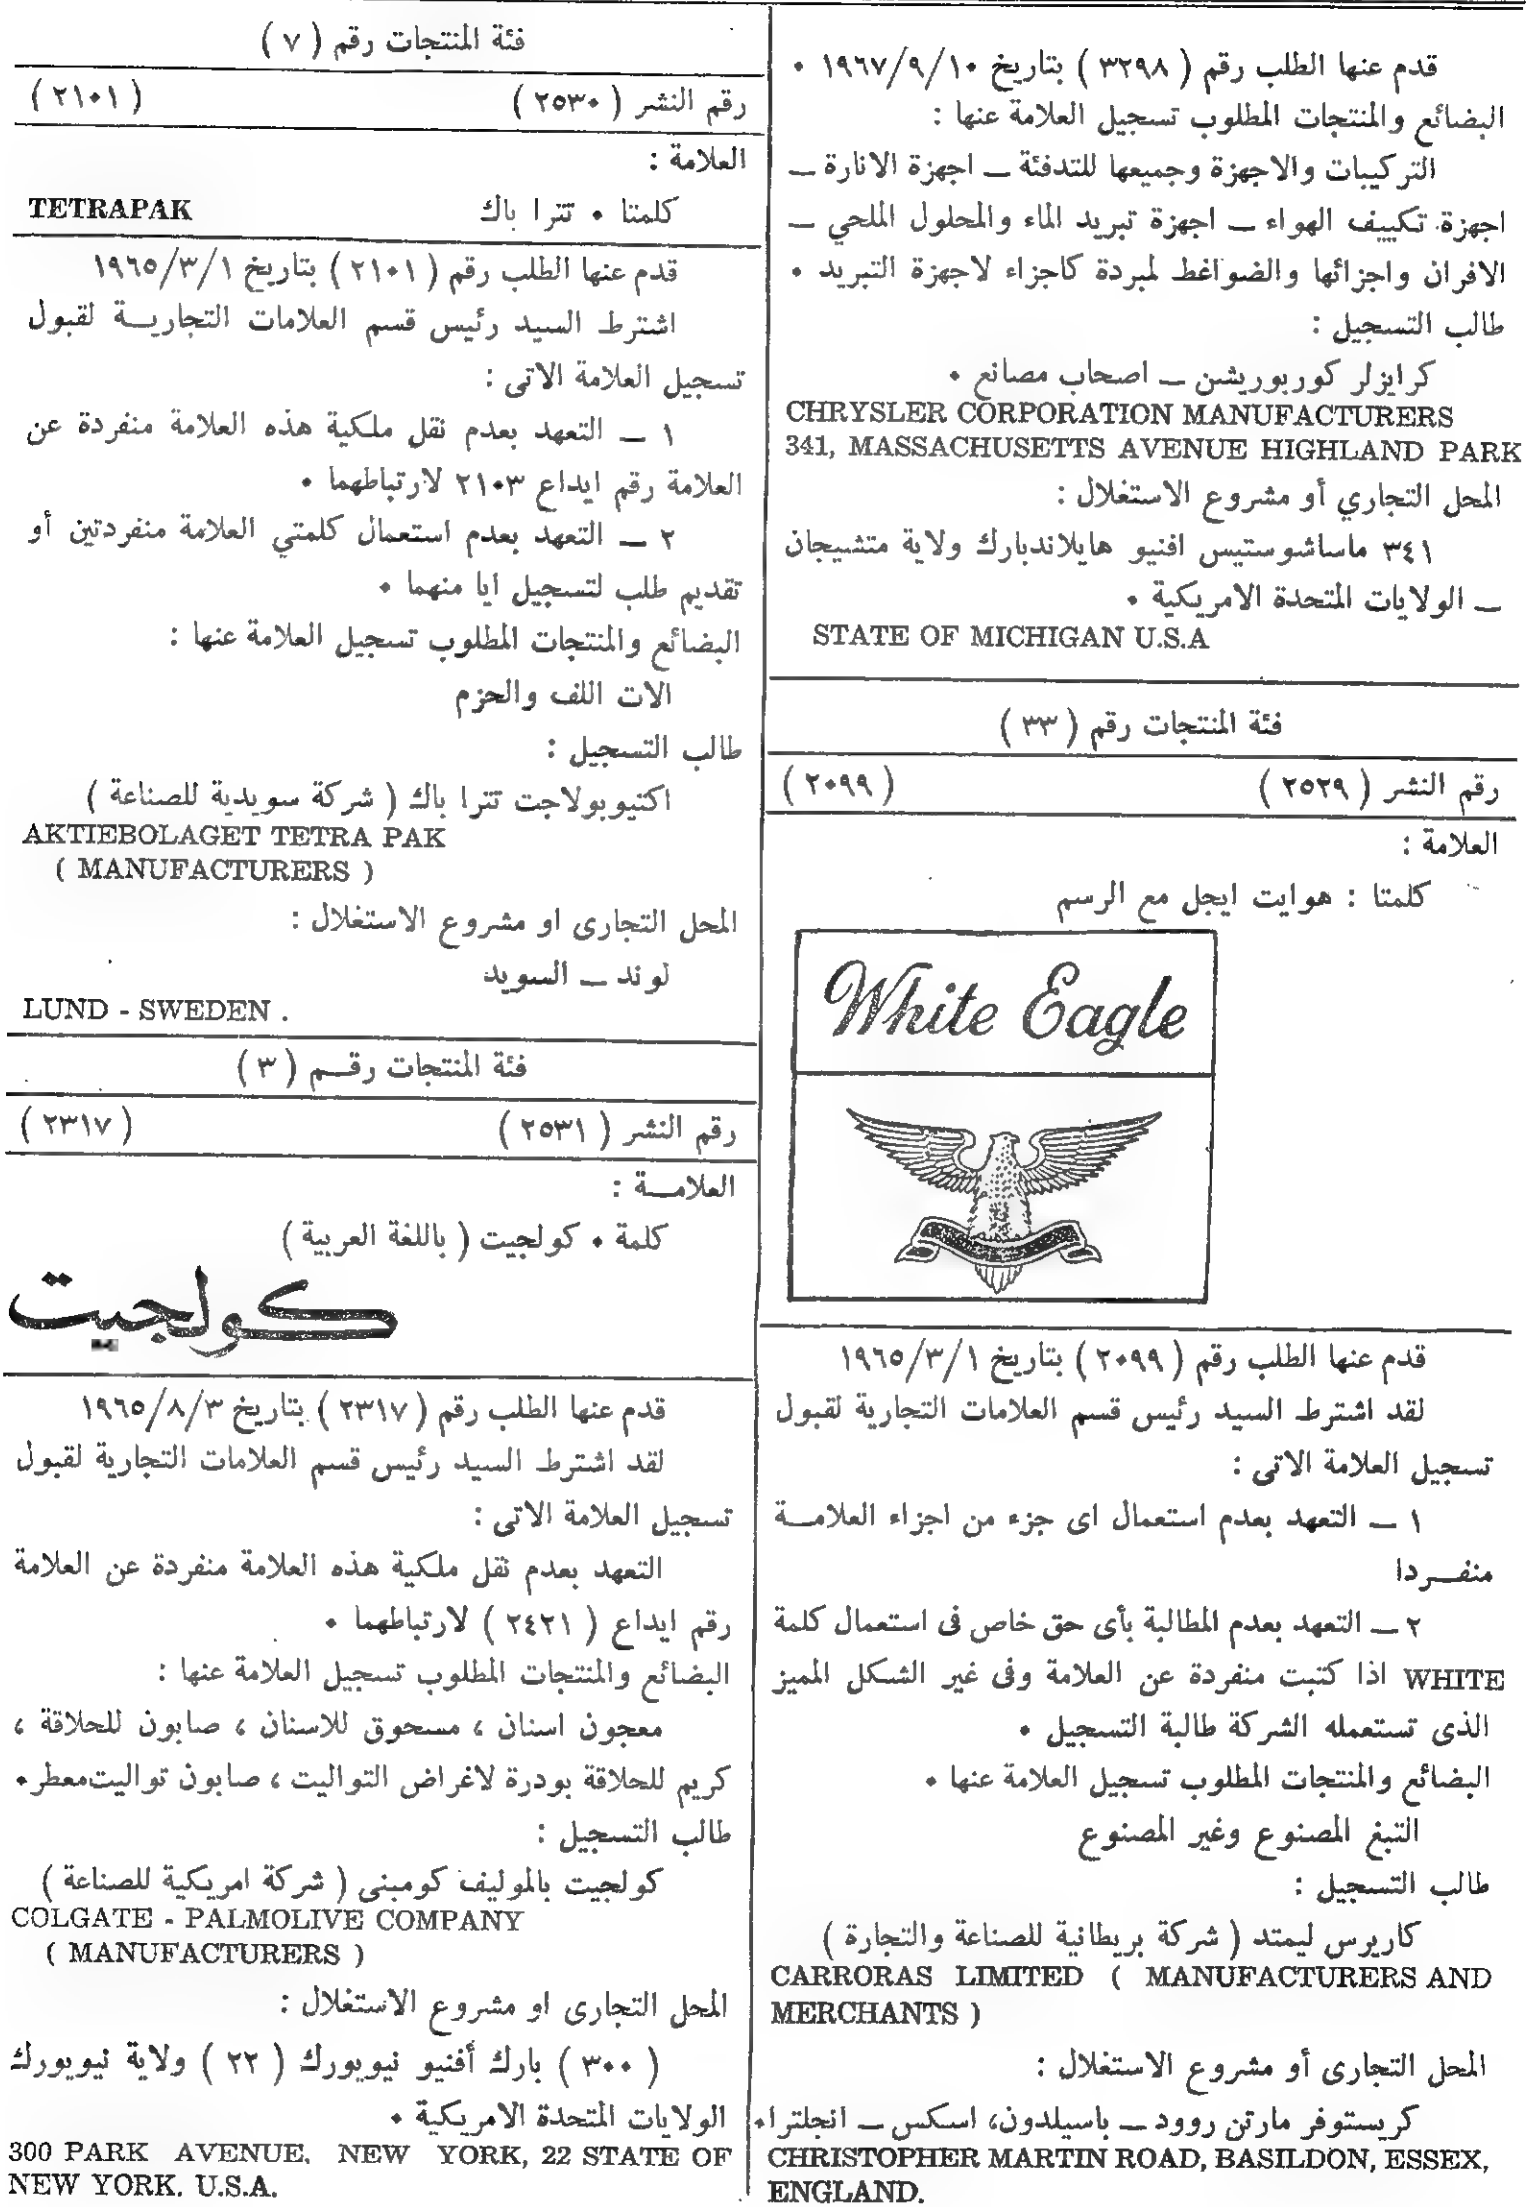 قدم عنها الطلب رقم ( ٣٢٩٨ ) بتاريخ ١٩٦٧/٩/١٠ ٠
البضائع والمنتجات المطلوب تسجيل العلامة عنها :
التركيبات والاجهزة وجميعها للتدفئة ــ اجهزة الانارة ــ
اجهزة تكييف الهواء ــ اجهزة تبريد الماء والمحلول الملحي ــ
الافران واجزائها والضواغط لمبردة كاجزاء لاجهزة التبريد ٠
طالب التسجيل :
كرايزلر كوربوريشن ــ اصحاب مصانع ٠
CHRYSLER CORPORATION MANUFACTURERS
341, MASSACHUSETTS AVENUE HIGHLAND PARK
المحل التجاري أو مشروع الاستغلال :
٣٤١ ماساشوستيس افنيو هايلاندبارك ولاية متشيجان
ــ الولايات المتحدة الامريكية ٠
STATE OF MICHIGAN U.S.A
فئة المنتجات رقم ( ٣٣ )
رقم النشر ( ٢٥٢٩ ) ( ٢٠٩٩ )
العلامة :
كلمتا : هوايت ايجل مع الرسم
White Eagle
قدم عنها الطلب رقم ( ٢٠٩٩ ) بتاريخ ١٩٦٥/٣/١
لقد اشترط السيد رئيس قسم العلامات التجارية لقبول
تسجيل العلامة الاتى :
١ ــ التعهد بعدم استعمال اى جزء من اجزاء العلامـــة
منفـــردا
٢ ــ التعهد بعدم المطالبة بأى حق خاص فى استعمال كلمة
WHITE اذا كتبت منفردة عن العلامة وفى غير الشكل المميز
الذى تستعمله الشركة طالبة التسجيل ٠
البضائع والمنتجات المطلوب تسجيل العلامة عنها ٠
التبغ المصنوع وغير المصنوع
طالب التسجيل :
كاريرس ليمتد ( شركة بريطانية للصناعة والتجارة )
CARRORAS LIMITED ( MANUFACTURERS AND
MERCHANTS )
المحل التجارى أو مشروع الاستغلال :
كريستوفر مارتن روود ــ باسيلدون، اسكس ــ انجلترا٠
CHRISTOPHER MARTIN ROAD, BASILDON, ESSEX,
ENGLAND.
فئة المنتجات رقم ( ٧ )
رقم النشر ( ٢٥٣٠ ) ( ٢١٠١ )
العلامة :
كلمتا ٠ تترا باك TETRAPAK
قدم عنها الطلب رقم ( ٢١٠١ ) بتاريخ ١٩٦٥/٣/١
اشترط السيد رئيس قسم العلامات التجاريــة لقبول
تسجيل العلامة الاتى :
١ ــ التعهد بعدم نقل ملكية هذه العلامة منفردة عن
العلامة رقم ايداع ٢١٠٣ لارتباطهما ٠
٢ ــ التعهد بعدم استعمال كلمتي العلامة منفردتين أو
تقديم طلب لتسجيل ايا منهما ٠
البضائع والمنتجات المطلوب تسجيل العلامة عنها :
الات اللف والحزم
طالب التسجيل :
اكتيوبولاجت تترا باك ( شركة سويدية للصناعة )
AKTIEBOLAGET TETRA PAK
( MANUFACTURERS )
المحل التجارى او مشروع الاستغلال :
لوند ــ السويد
LUND - SWEDEN .
فئة المنتجات رقـــم ( ٣ )
رقم النشر ( ٢٥٣١ ) ( ٢٣١٧ )
العلامـــة :
كلمة ٠ كولجيت ( باللغة العربية )
كولجيت
قدم عنها الطلب رقم ( ٢٣١٧ ) بتاريخ ١٩٦٥/٨/٣
لقد اشترط السيد رئيس قسم العلامات التجارية لقبول
تسجيل العلامة الاتى :
التعهد بعدم نقل ملكية هذه العلامة منفردة عن العلامة
رقم ايداع ( ٢٤٢١ ) لارتباطهما ٠
البضائع والمنتجات المطلوب تسجيل العلامة عنها :
معجون اسنان ، مسحوق للاسنان ، صابون للحلاقة ،
كريم للحلاقة بودرة لاغراض التواليت ، صابون تواليت معطر٠
طالب التسجيل :
كولجيت بالموليف كومبنى ( شركة امريكية للصناعة )
COLGATE - PALMOLIVE COMPANY
( MANUFACTURERS )
المحل التجارى او مشروع الاستغلال :
( ٣٠٠ ) بارك أفنيو نيويورك ( ٢٢ ) ولاية نيويورك
الولايات المتحدة الامريكية ٠
300 PARK AVENUE. NEW YORK, 22 STATE OF
NEW YORK. U.S.A.